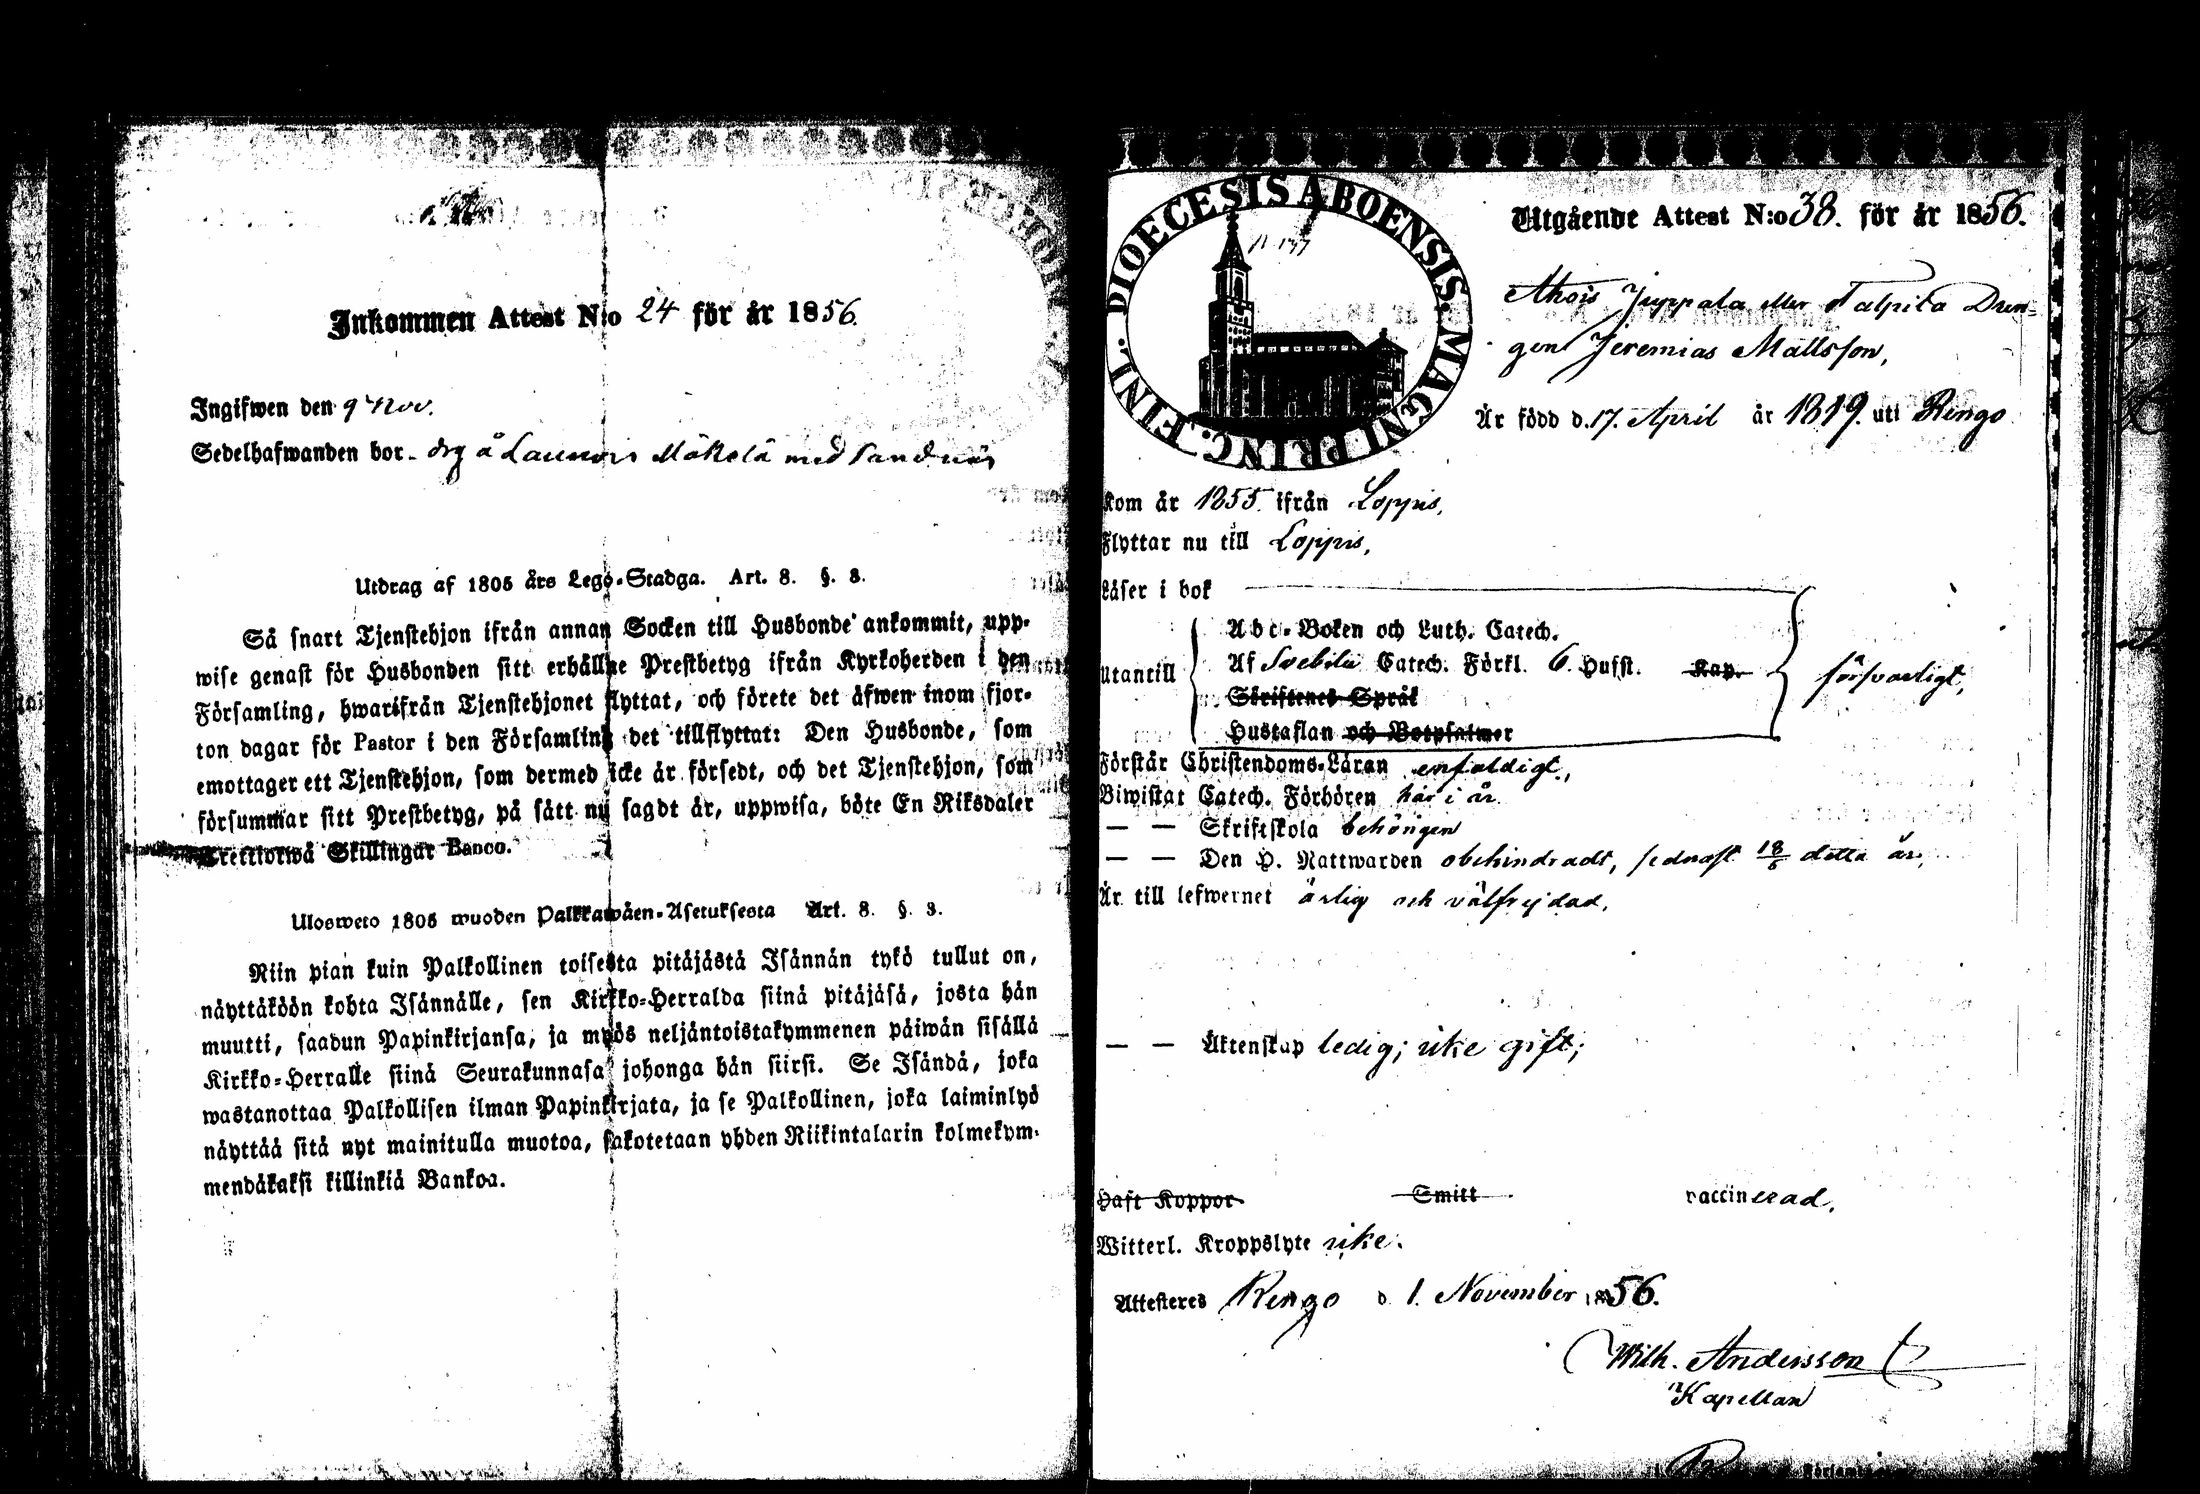 Inkommen Attest N:o 24 för år 1856.
Ingifwen den 9 Nov.
Sedelhafwanden bor
Utdrag af 1805 års Lego-Stadga. Art. 8. §. 3.
Så snart Tjenstehjon ifrån annan Socken till Husbonde ankommit, upp-
wise genast för Husbonden sitt erhållne Prestbetyg ifrån Kyrkoherden i den
Församling, hwarifrån Tjenstehjonet flyttat, och förete det äfwen inom fjor-
ton dagar för Pastor i den Församling det tillflyttat: Den Husbonde, som
emottager ett Tjenstehjon, som dermed icke är försedt, och det Tjenstehjon, som
försummar sitt Prestbetyg, på sätt nu sagdt är, uppwisa, böte En Riksdaler
Trettiotwå Skillingar Banco.
Ulosweto 1805 wuoden Palkkawäen-Asetuksesta Art. 8. §. 3.
Niin pian kuin Palkollinen toisesta pitäjästä Isännän tykö tullut on,
näyttäköön kohta Isännälle, sen Kirkko-Herralda siinä pitäjäsä, josta hän
muutti, saadun Papinkirjansa, ja myös neljäntoistakymmenen päiwän sisällä
Kirkko-Herralle siinä Seurakunnasa johonga hän siirsi. Se Isändä, joka
wastanottaa Palkollisen ilman Papinkirjata, ja se Palkollinen, joka laiminlyö
näyttää sitä nyt mainitulla muotoa, sakotetaan yhden Riikintalarin kolmekym-
mendäkaksi killinkiä Bankoa.
DIOECESIS ABOENSIS. MAGNI PRINC. FINL.
Utgående Attest N:o 38. för år 1856.
Juppala eller Talpila Drän-
gen Jeremias Mattsson,
Är född d. 17. April år 1819. uti Rengo
Kom år 1855. ifrån Loppis,
Flyttar nu till Loppis,
Läser i bok
Utantill
Abc-Boken och Luth. Catech.
Af Svebilii Catech. Förkl. 6. Hufst. Kap.
Skriftenes Språk
Hustaflan och Botpsalmer
försvarligt,
Förstår Christendoms-Läran enfaldigt,
Biwistat Catech. Förhören här i år.
— — Skriftskola behörigen
— — Den H. Nattwarden obehindradt, sednast 18/6 detta år,
Är till lefwernet ärlig och välfrejdad,
— — Äktenskap ledig; icke gift;
Haft Koppor Smitt vaccinerad,
Witterl. Kroppslyte icke.
Attesteres Rengo d. 1. November 1856.
Wilh. Andersson
Kapellan